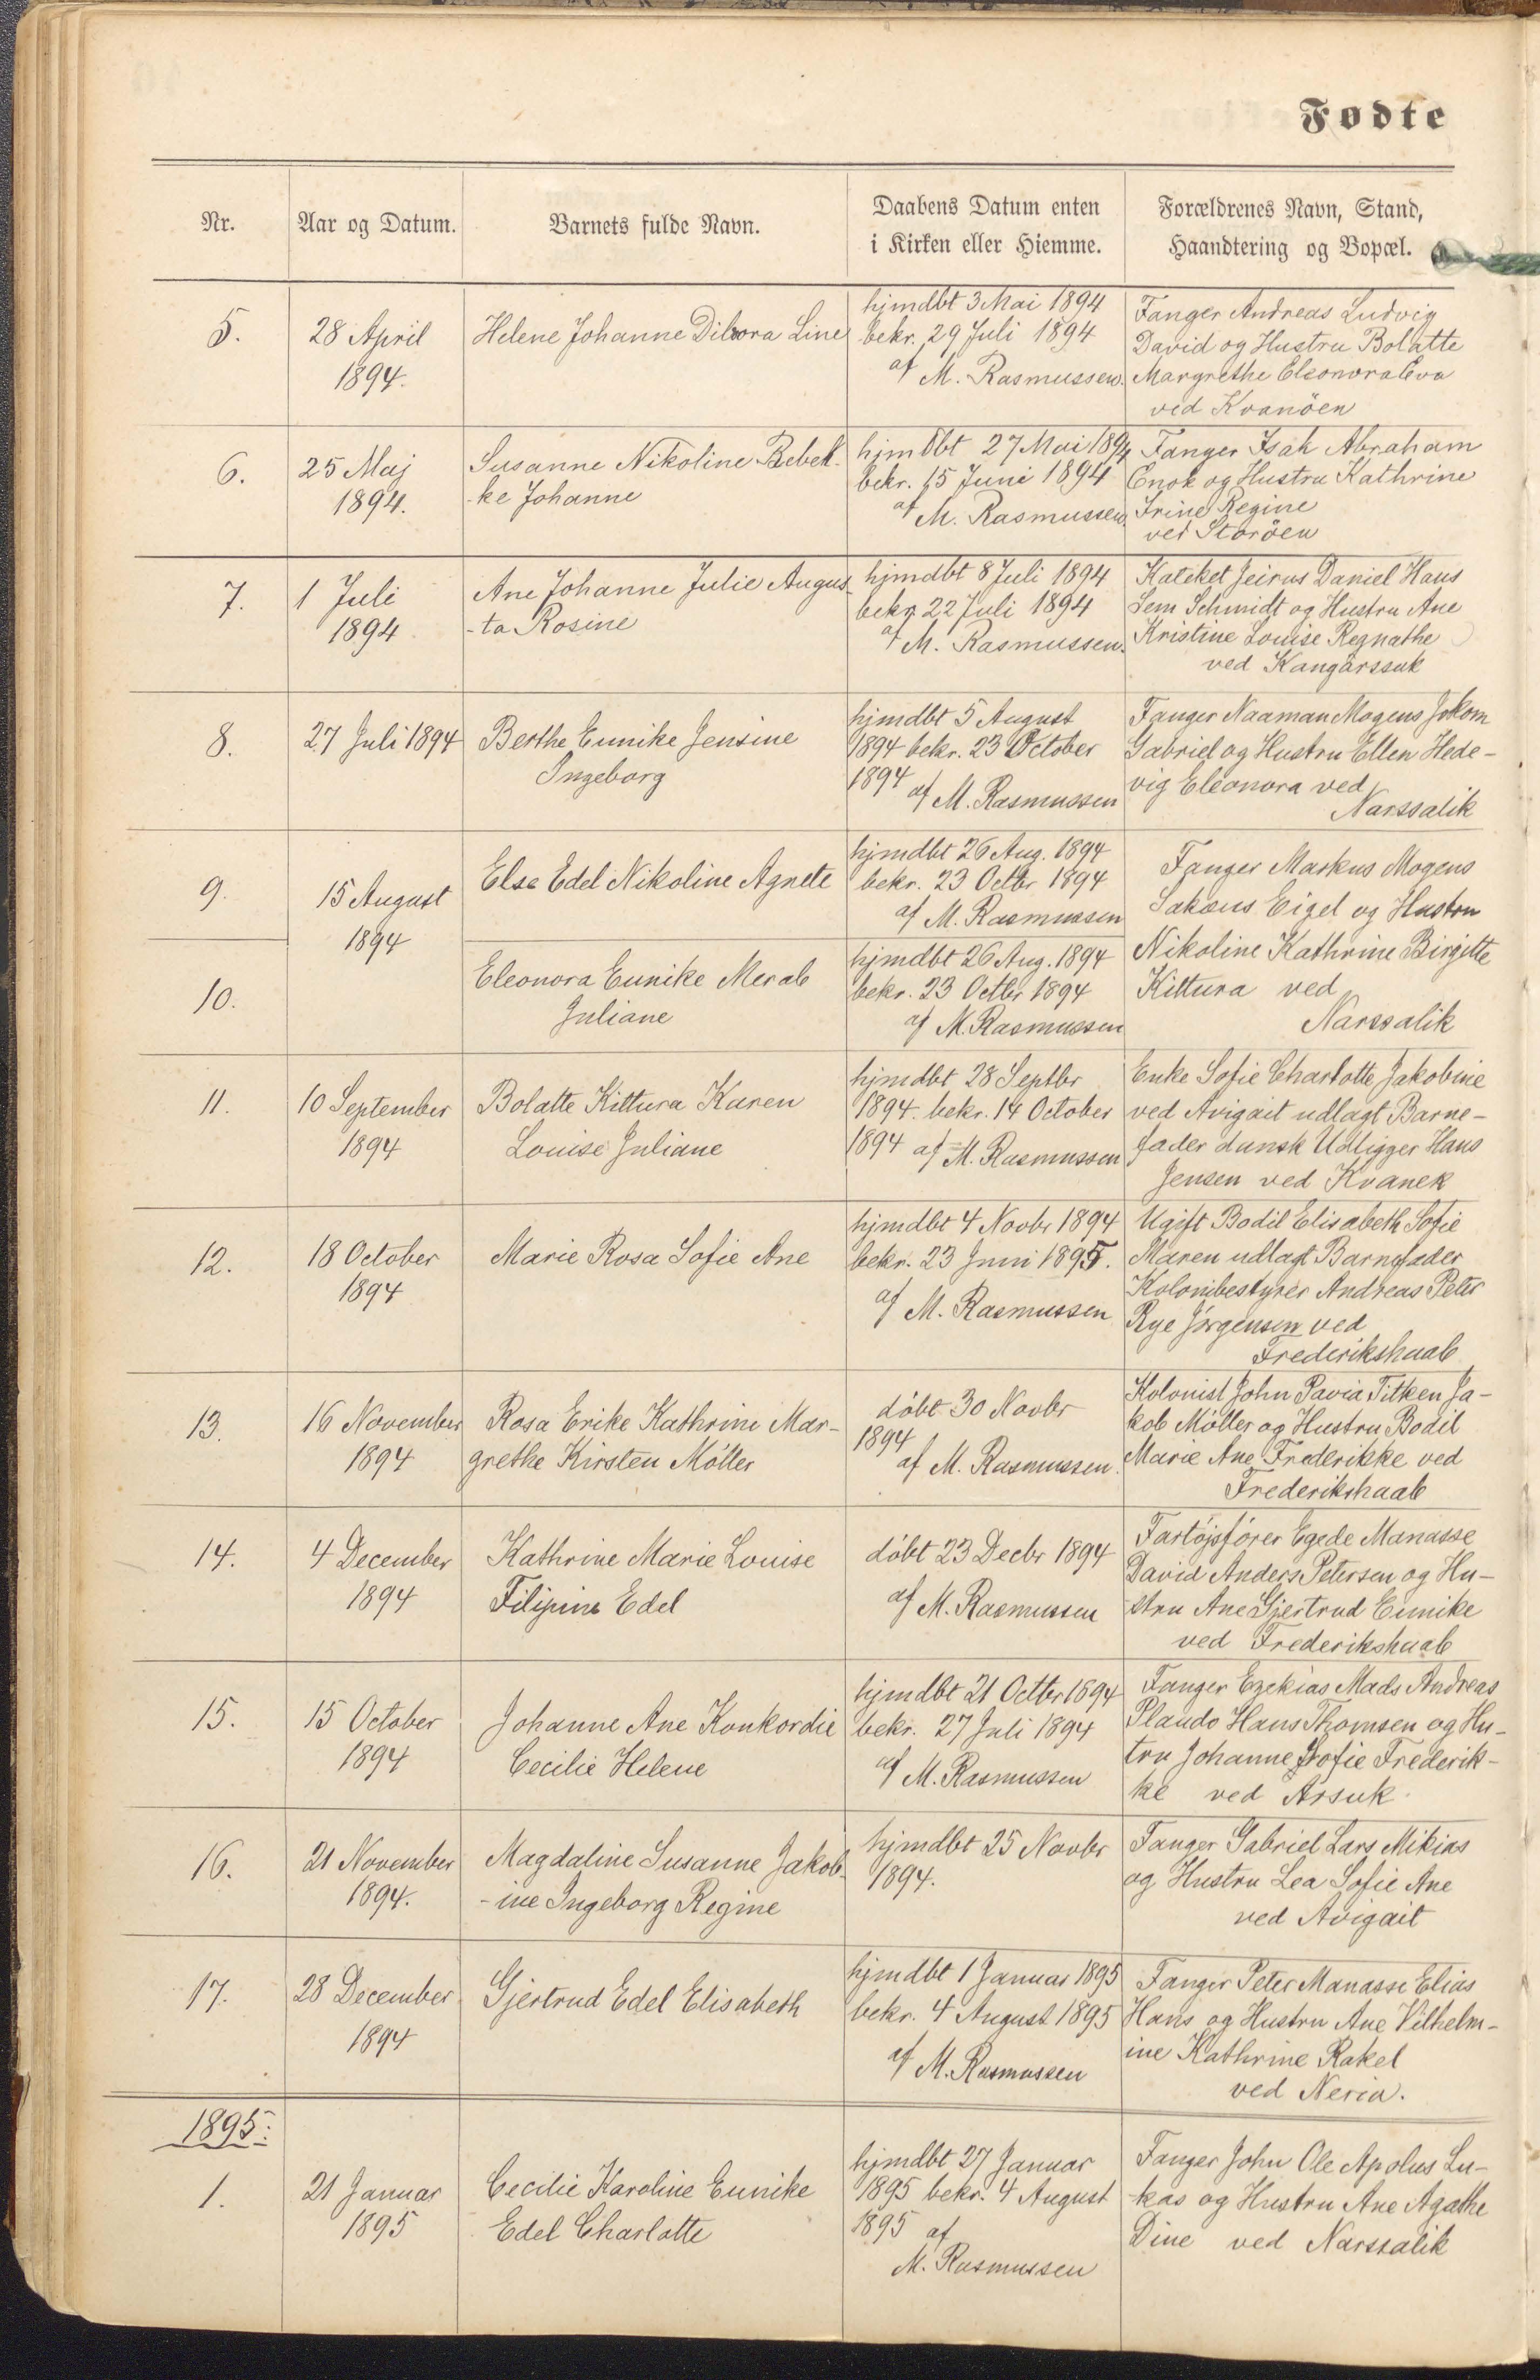 Fødte
Nr.
Aar og Datum.
Barnets fulde Navn.
Daabens Datum enten
i Kirken eller Hiemme.
Forældrenes Navn, Stand,
Haandtering og Bopæl.
5.
28 April
1894.
Helene Johanne Debora Line
hjmdbt 3 Mai 1894
bekr. 29 Juli 1894
af M. Rasmussen.
Fanger Andreas Ludvig
David og Hustru Bolatte
Margrethe Eleonora Eva
ved Kvanöen
6.
25 Maj
1894.
Susanne Nikoline Rebek-
ke Johanne
hjmdbt 27 Mai 1894
bekr. 15 Juni 1894
af M. Rasmussen.
Fanger Isak Abraham
Enok og Hustru Kathrine
Irine Regine
ved Storöen
7.
1 Juli
1894
Ane Johanne Julie Augus-
-ta Rosine
hjmdbt 8 Juli 1894
bekr 22 Juli 1894
af M. Rasmussen.
Kateket Jeirus Daniel Hans
Sem Schmidt og Hustru Ane
Kristine Louise Regnathe
ved Kangârssuk
8.
27 Juli 1894
Berthe Eunike Jensine
Ingeborg
hjmdbt 5 August
1894 bekr. 23 October
1894 af M. Rasmussen
Fanger Naaman Mogens Jokom
Gabriel og Hustru Ellen Hede-
vig Eleonora ved
Narssalik
9.
15 August
1894
Else Edel Nikoline Agnete
hjmdbt 26 Aug. 1894
bekr. 23 Octbr 1894
af M. Rasmussen
Fanger Markus Mogens
Sakæus Eigel og Hustru
Nikoline Kathrine Birgitte
Kittura ved
Narssalik
10.
Eleonora Eunike Merab
Juliane
hjmdbt 26 Aug. 1894
bekr. 23 Octbr 1894
af M. Rasmussen
11.
10 September
1894
Bolatte Kittura Karen
Louise Juliane
hjmdbt 28 Septbr
1894. bekr. 14 October
1894 af M. Rasmussen
Enke Sofie Charlotte Jakobine
ved Avigait udlagt Barne-
fader dansk Udligger Hans
Jensen ved Kvanek
12.
18 October
1894
Marie Rosa Sofie Ane
hjmdbt 4 Novbr 1894
bekr. 23 Juni 1895.
af M. Rasmussen
Ugift Bodil Elisabeth Sofie
Maren udlagt Barnefader
Kolonibestyrer Andreas Peter
Rye Jörgensen ved
Frederikshaab
13.
16 November
1894
Rosa Erike Kathrine Mar-
grethe Kirsten Möller
döbt 30 Novbr
1894
af M. Rasmussen.
Kolonist John Pavia Titken Ja-
kob Möller og Hustru Bodil
Marie Ane Frederikke ved
Frederikshaab
14.
4 December
1894
Kathrine Marie Louise
Filipine Edel
döbt 23 Decbr 1894
af M. Rasmussen
Fartöjsförer Egede Manasse
David Anders Petersen og Hu-
stru Ane Gjertrud Eunike
ved Frederikshaab
15.
15 October
1894
Johanne Ane Konkordie
Cecilie Helene
hjmdbt 21 Octbr 1894
bekr. 27 Juli 1894
af M. Rasmussen
Fanger Ezekias Mads Andreas
Plaudo Hans Thomsen og Hu-
tru Johanne Sofie Frederik-
ke ved Arsuk
16.
21 November
1894.
Magdaline Susanne Jakob-
-ine Ingeborg Regine
hjmdbt 25 Novbr
1894.
Fanger Gabriel Lars Mikias
og Hustru Lea Sofie Ane
ved Avigait
17.
28 December
1894
Gjertrud Edel Elisabeth
hjmdbt 1 Januar 1895
bekr. 4 August 1895
af M. Rasmussen
Fanger Peter Manasse Elias
Hans og Hustru Ane Vilhelm-
ine Kathrine Rakel
ved Neria.
1895:
1.
21 Januar
1895
Cecilie Karoline Eunike
Edel Charlotte
hjmdbt 27 Januar
1895 bekr. 4 August
1895 af
M. Rasmussen
Fanger John Ole Apolus Lu-
kas og Hustru Ane Agathe
Dine ved Narssalik